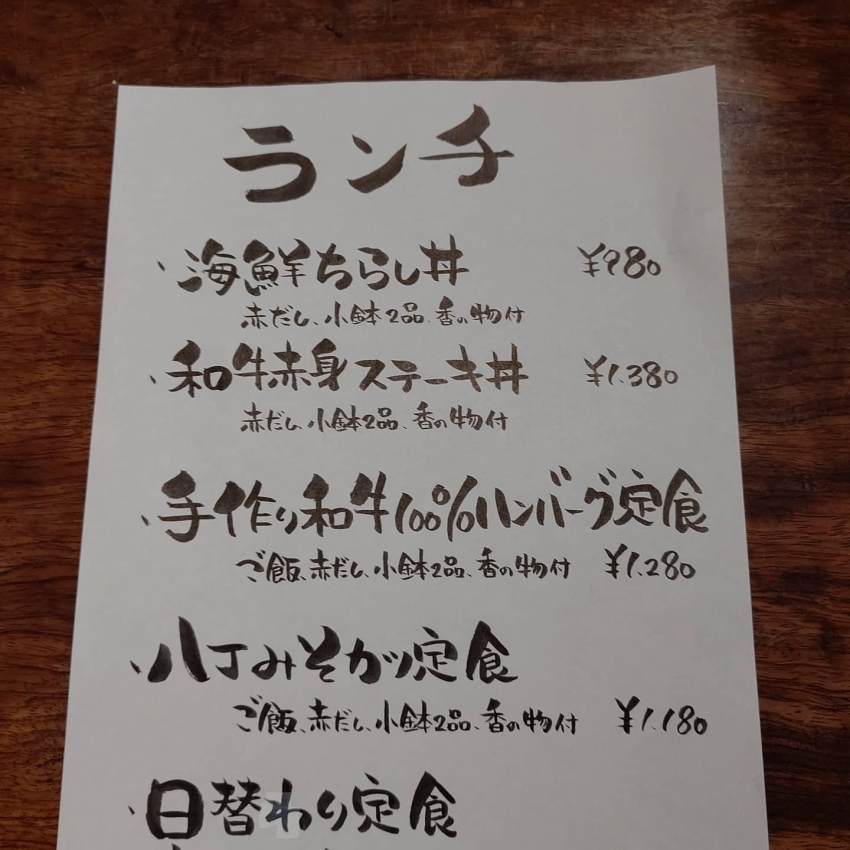 ランチ
、海鮮ちらし丼 ¥980
赤だし、小鉢2品、香の物付
、和牛赤身ステーキ丼 ¥1,380
赤だし、小鉢2品、香の物付
、手作り和牛100%ハンバーグ定食
ご飯、赤だし、小鉢2品、香の物付 ¥1,280
、八丁みそカツ定食
ご飯、赤だし、小鉢2品、香の物付 ¥1,180
、日替わり定食